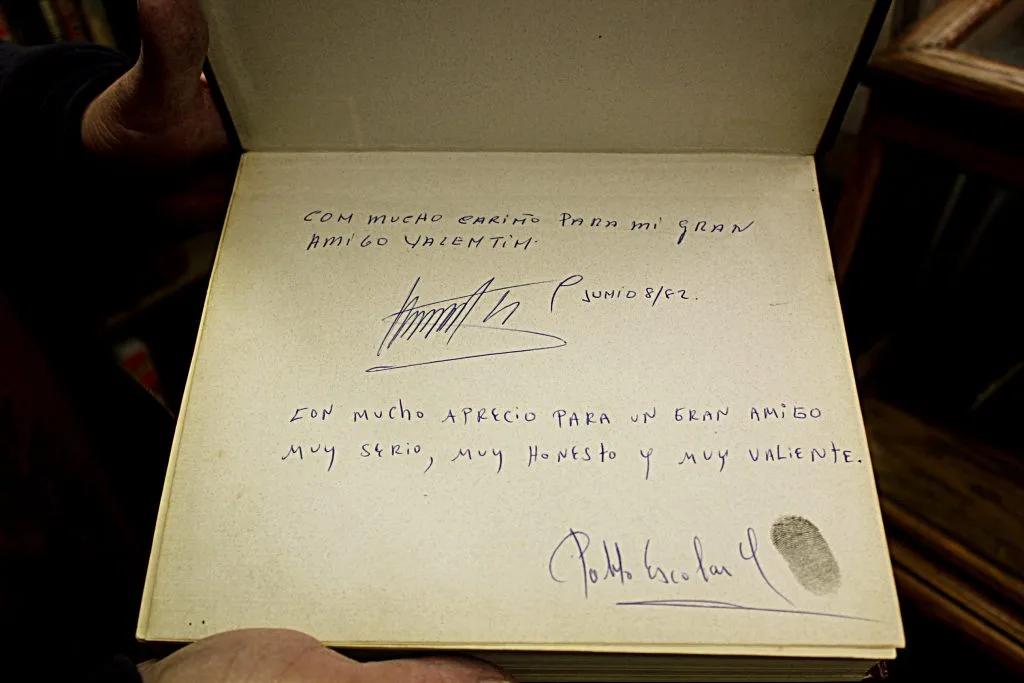 COM MUCHO CARIÑO PARA MI GRAN
AMIGO VALEMTIM.
JUMIO 8/82.
CON MUCHO APRECIO PARA UN GRAN AMIGO
MUY SERIO, MUY HONESTO Y MUY VALIENTE.
Pablo Escobar G